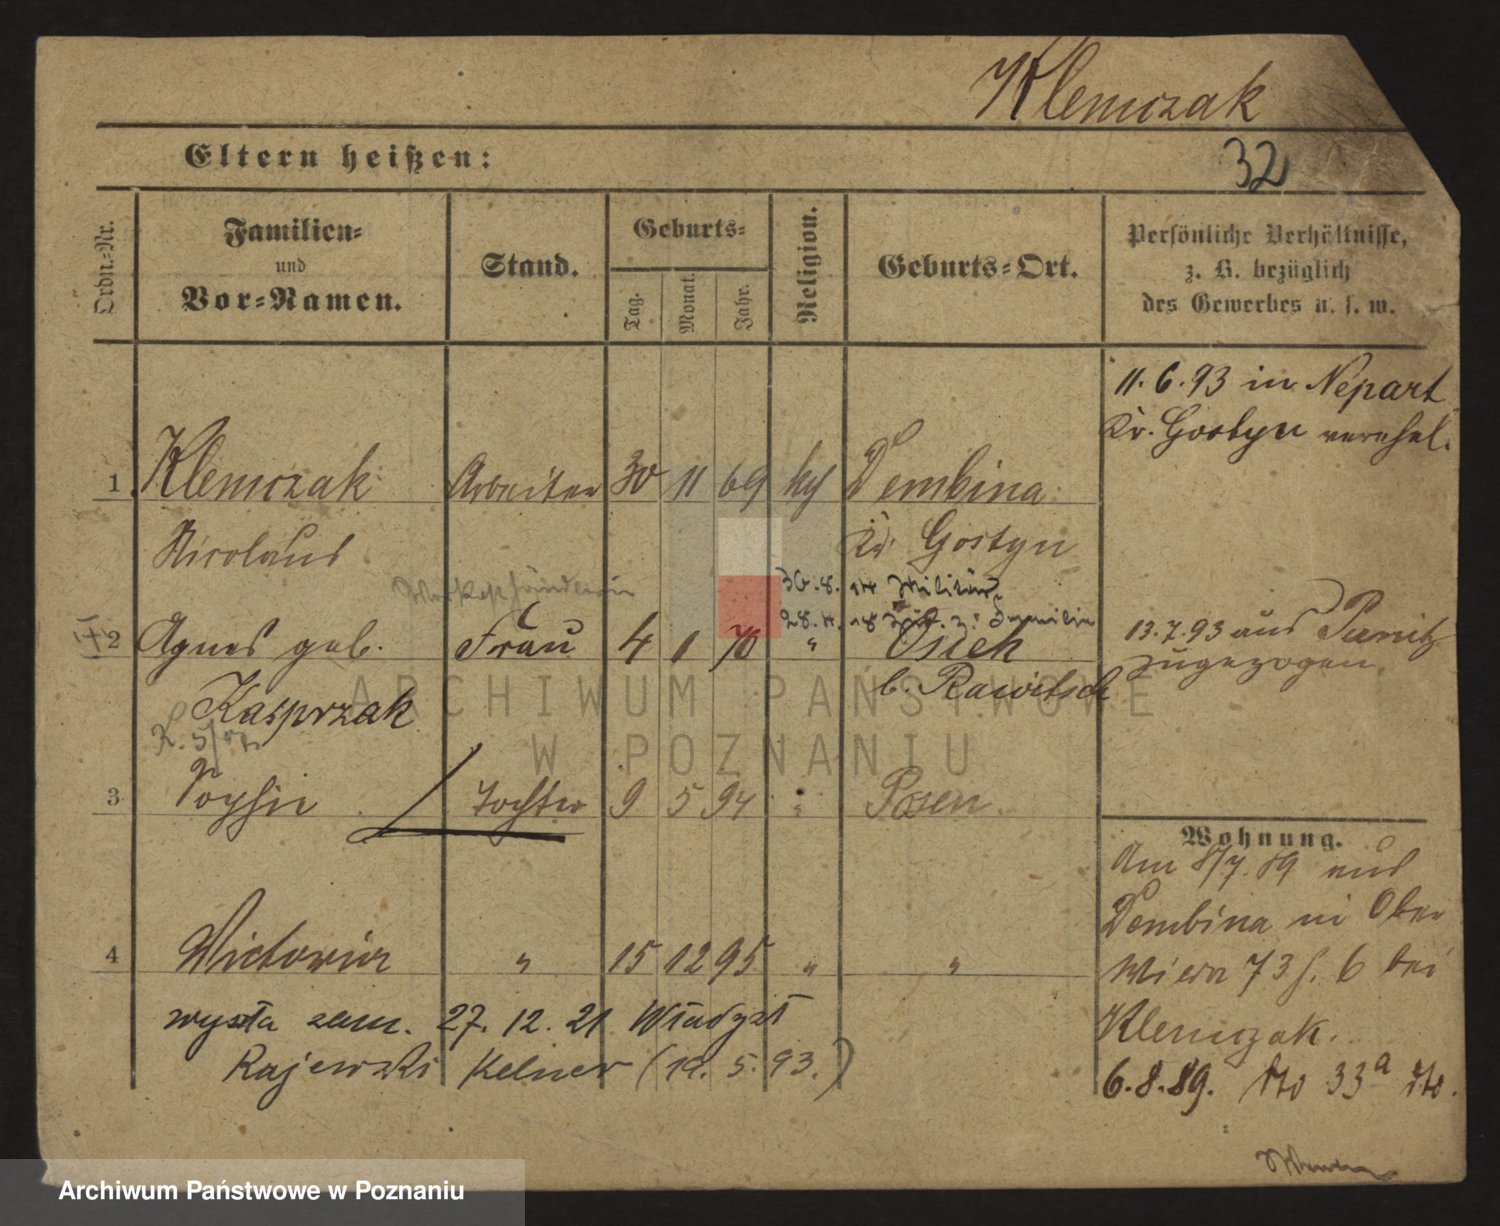 Klemczak
Eltern heißen:
32
Ordn.-Nr.
Familien-
und
Vor-Namen.
Stand.
Geburts-
Tag.
Monat.
Jahr.
Religion.
Geburts-Ort.
Persönliche Verhältnisse,
z. B. bezüglich
des Gewerbes u. s. w.
11.6.93 in Nepart
Kr. Gostyn verehel.
1 Klemczak Arbeiter 30 11 69 kth Dembina
Nicolaus Kr. Gostyn
30.8. Militär
2 Agnes geb. Frau 4 1 70 " Osiek
Kasprzak b. Rawitsch
13.7.93 aus Punitz
zugezogen.
3 Sophie Tochter 9 5 94 " Posen
Wohnung.
4 Victoria " 15 12 95 " "
Am 8/7.89 aus
Dembina in Ober
Wierz 73 b. 6 bei
Klemczak.
6.8.89. dto 33a dto.
wyszła zam. 27.12.21 Władysł
Rajewski Kelner (19.5.93.)
ARCHIWUM PAŃSTWOWE
W POZNANIU
Archiwum Państwowe w Poznaniu